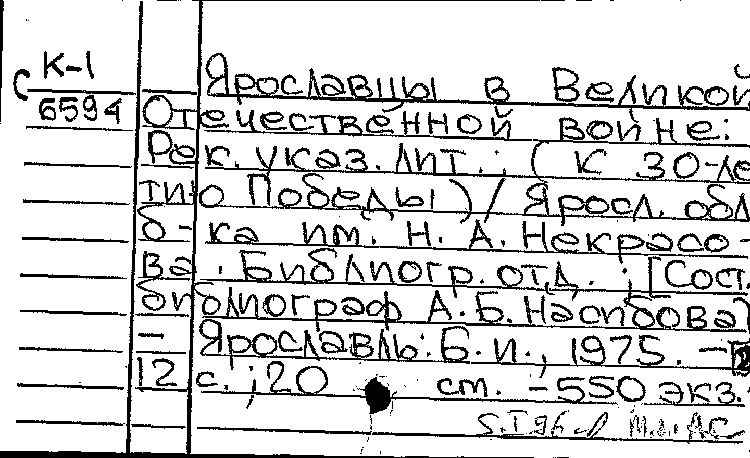 К-1
С
6594
Ярославцы в Великой
Отечественной войне:
Рек. указ. лит.; (К 30-ле
тию Победы) / Яросл. обл
б-ка им. Н. А. Некрасо-
ва. Библиогр. отд.; [Сост.
библиограф А. Б. Насибова]
- Ярославль: Б. и., 1975. -
12 с.; 20 см. - 550 экз.